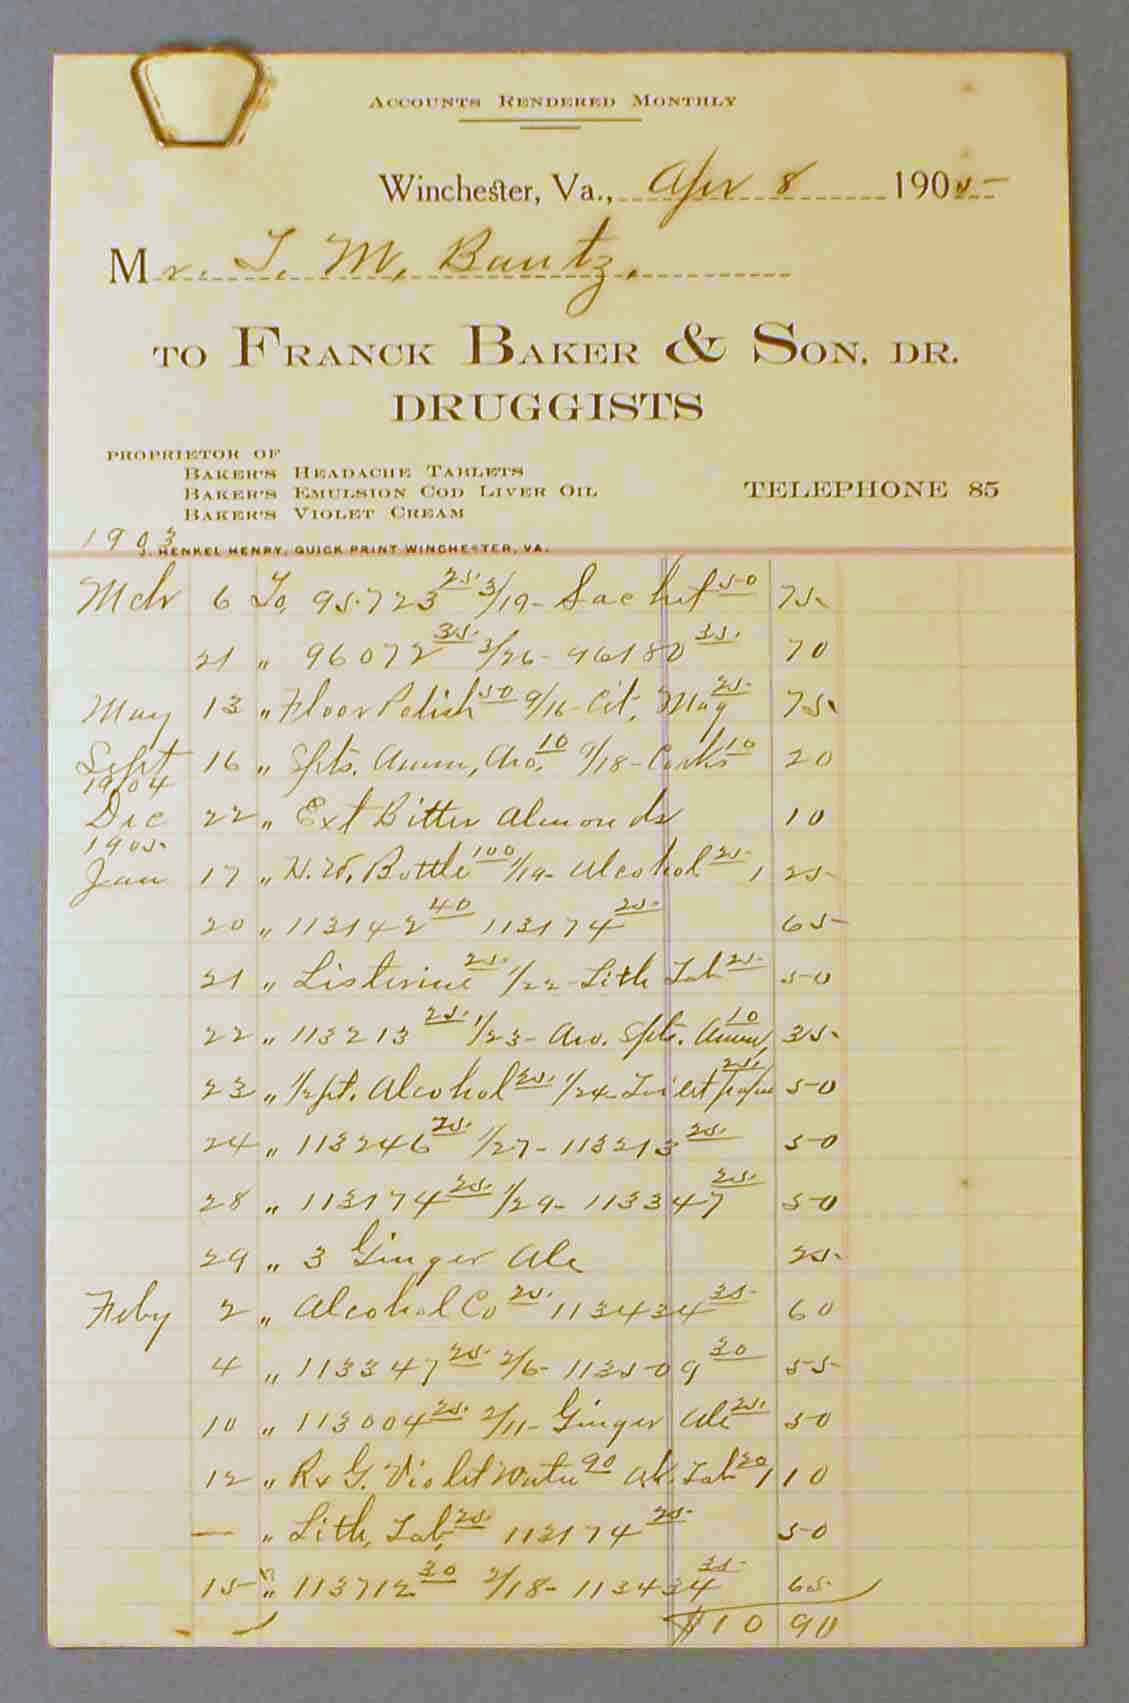 ACCOUNTS RENDERED MONTHLY
Winchester, Va., Apr 8 1905
Mr. T. M. Bantz.
TO FRANCK BAKER & SON, DR.
DRUGGISTS
PROPRIETOR OF
BAKER'S HEADACHE TABLETS
BAKER'S EMULSION COD LIVER OIL
TELEPHONE 85
BAKER'S VIOLET CREAM
1903
J. HENKEL HENRY, QUICK PRINT WINCHESTER, VA.
Mch 6 To, 95723 25. 3/19- Sachet 50 75.
21 " 96072 35. 3/26- 96180 35. 70
May 13 " Floor Polish 50 9/16- Cit. Mag 25 75.
Sept 16 " Spts. Amm, Aro. 10 9/18- Corks 10 20
1904
Dec 22 " Ext Bitter Almonds 10
1905.
Jan 17 " H. W. Bottle 100 1/19- Alcohol 25. 1 25
20 " 113142 40 113174 25. 65
21 " Listerine 25. 1/22- Lith Tab 25. 50
22 " 113213 25. 1/23- Aro. Spts. Amm 10 35.
23 " 1/2 pt. Alcohol 25. 1/24- 25. 50
24 " 113246 25. 1/27- 113213 25. 50
28 " 113174 25. 1/29- 113347 25. 50
29 " 3 Ginger Ale 25.
Feby 2 " Alcohol Co 25. 113434 35. 60
4 " 113347 25. 2/6- 113509 30 55
10 " 113004 25. 2/11- Ginger Ale 25. 50
12 " Rx G. Violet Water 90 Tab 20 1 10
— " Lith, Tab, 25. 113174 25. 50
15 " 113712 30 2/18- 113434 35. 65.
$10 90